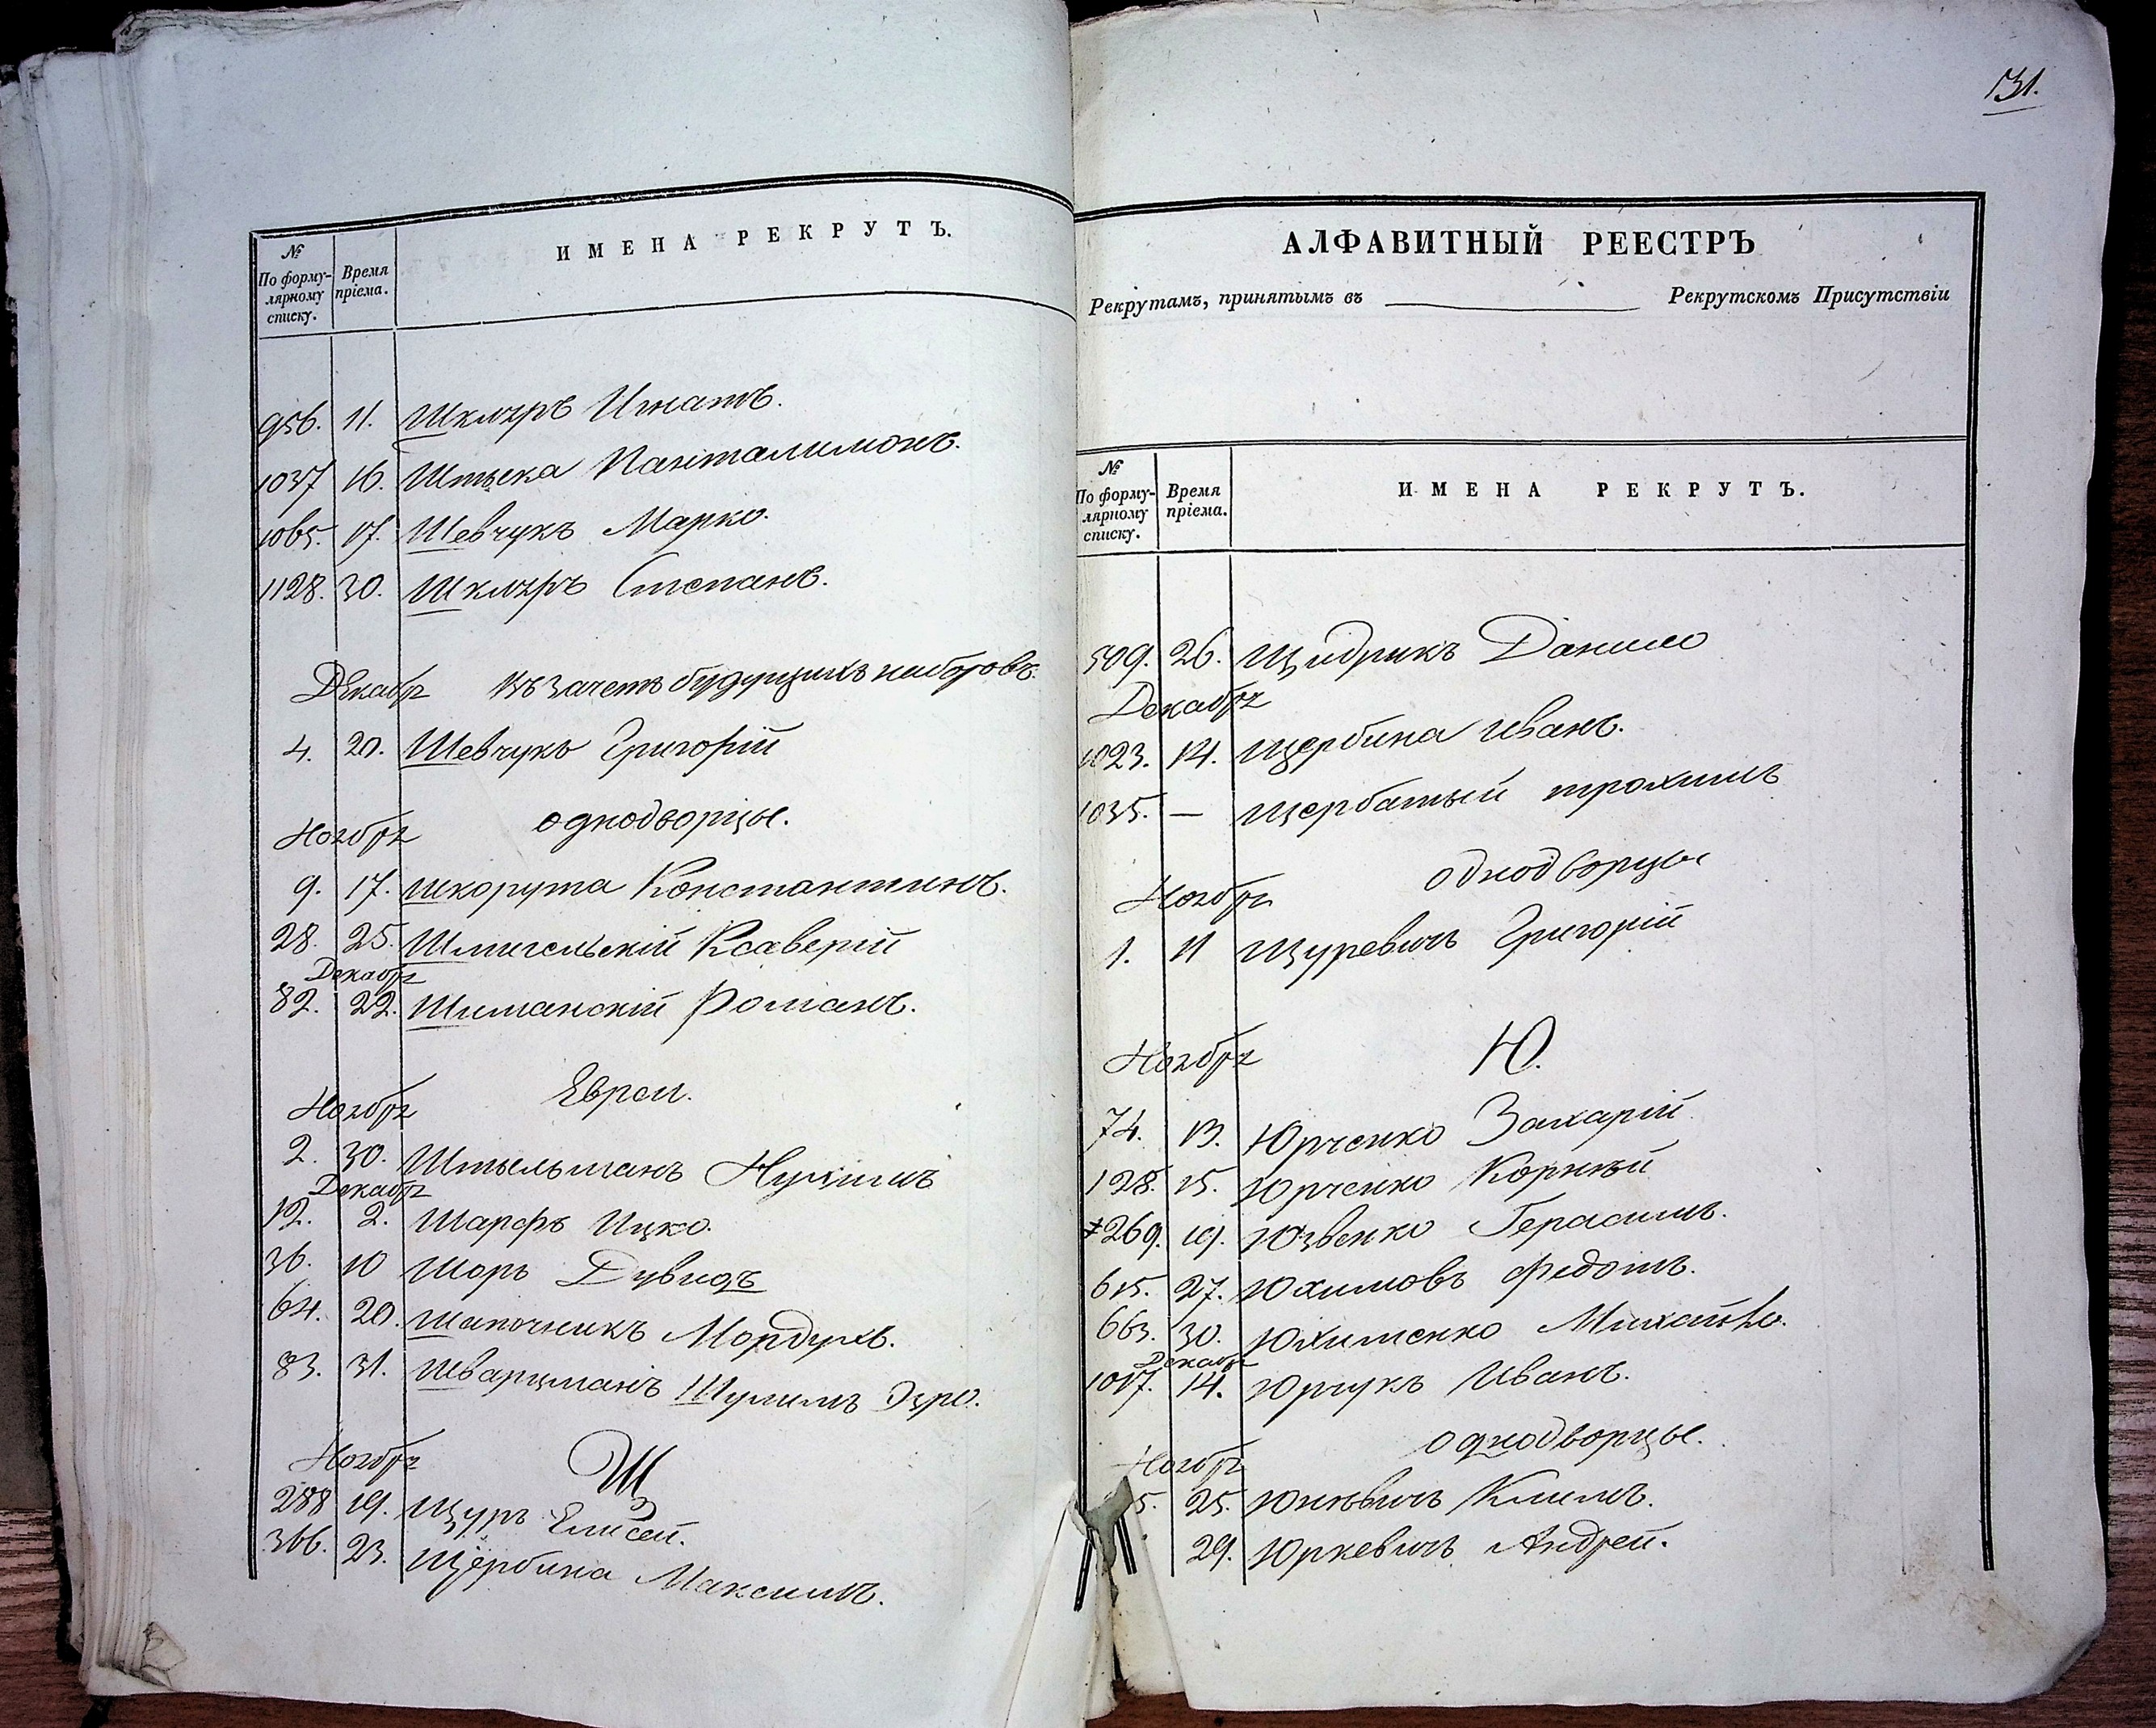 №
По форму-
лярному
списку.
Время
пріема.
ИМЕНА РЕКРУТЪ.
956. 11. Шкляръ Игнатъ.
1037 16. Штыка Панталимонъ.
1065. 17. Шевчукъ Марко.
1128. 30. Шкляръ Степанъ.
Декабря Въ зачетъ будущихъ наборовъ.
4. 20. Шевчукъ Григорій
Ноября однодворцы.
9. 17. Шкорута Константинъ.
28. 25. Шмигельскій Ксаверій
Декабря
82. 22. Шиманскій Романъ.
Ноября Евреи.
2. 30. Штыльманъ Нухимъ
Декабря
12. 2. Шарфъ Ицко.
36. 10 Шоръ Дувидъ
64. 20. Шапочникъ Мордухъ.
83. 31. Шварцманъ Шулимъ Эзро.
Ноября Щ
288 19. Щуръ Елисей.
366. 23. Щербина Максимъ.
131.
АЛФАВИТНЫЙ РЕЕСТРЪ
Рекрутамъ, принятымъ въ Рекрутскомъ Присутствіи
№
По форму-
лярному
списку.
Время
пріема.
ИМЕНА РЕКРУТЪ.
509. 26. Щидрикъ Данило
Декабря
1023. 14. Щербина Иванъ.
1035. — Щербатый Трохимъ
Ноября однодворцы
1. 11 Щуревичъ Григорій
Ноября Ю.
74. 13. Юрченко Захарій
128. 15. Юрченко Корнѣй
269. 19. Юзвенко Герасимъ.
615. 27. Юхимовъ Федотъ.
663. 30. Юхименко Михайло.
Декабря
1017. 14. Юрчукъ Иванъ.
однодворцы.
Ноября
5. 25. Юневичъ Климъ.
29. Юркевичъ Андрей.